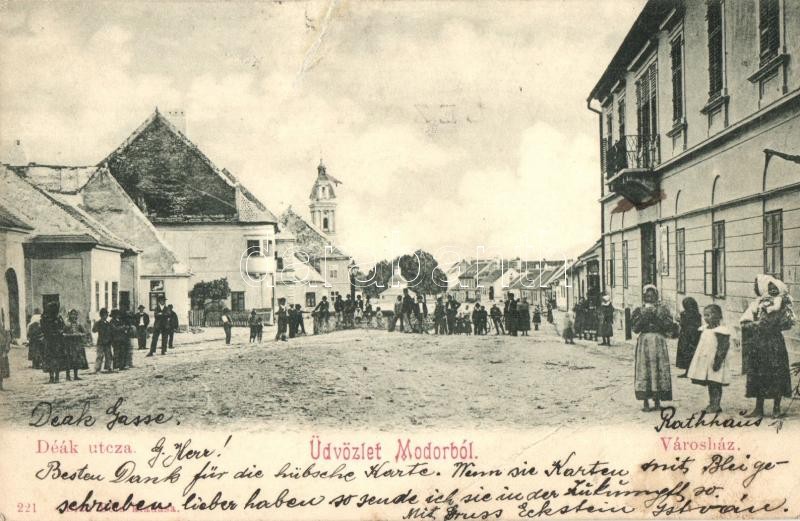 Deak Gasse.
Rathhaus
Déák utcza.
Üdvözlet Modorból.
Városház.
G. Herr!
Besten Dank für die hübsche Karte. Wenn sie Karten mit Blei ge-
schrieben lieber haben so sende ich sie in der Zukumft so.
Mit Gruss Eckstein István.
221